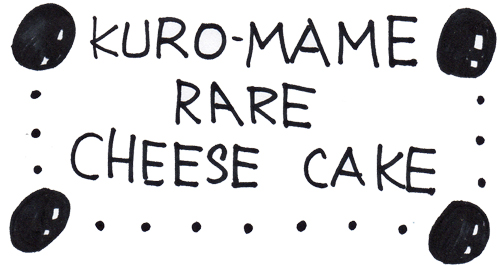 KURO-MAME
RARE
CHEESE CAKE